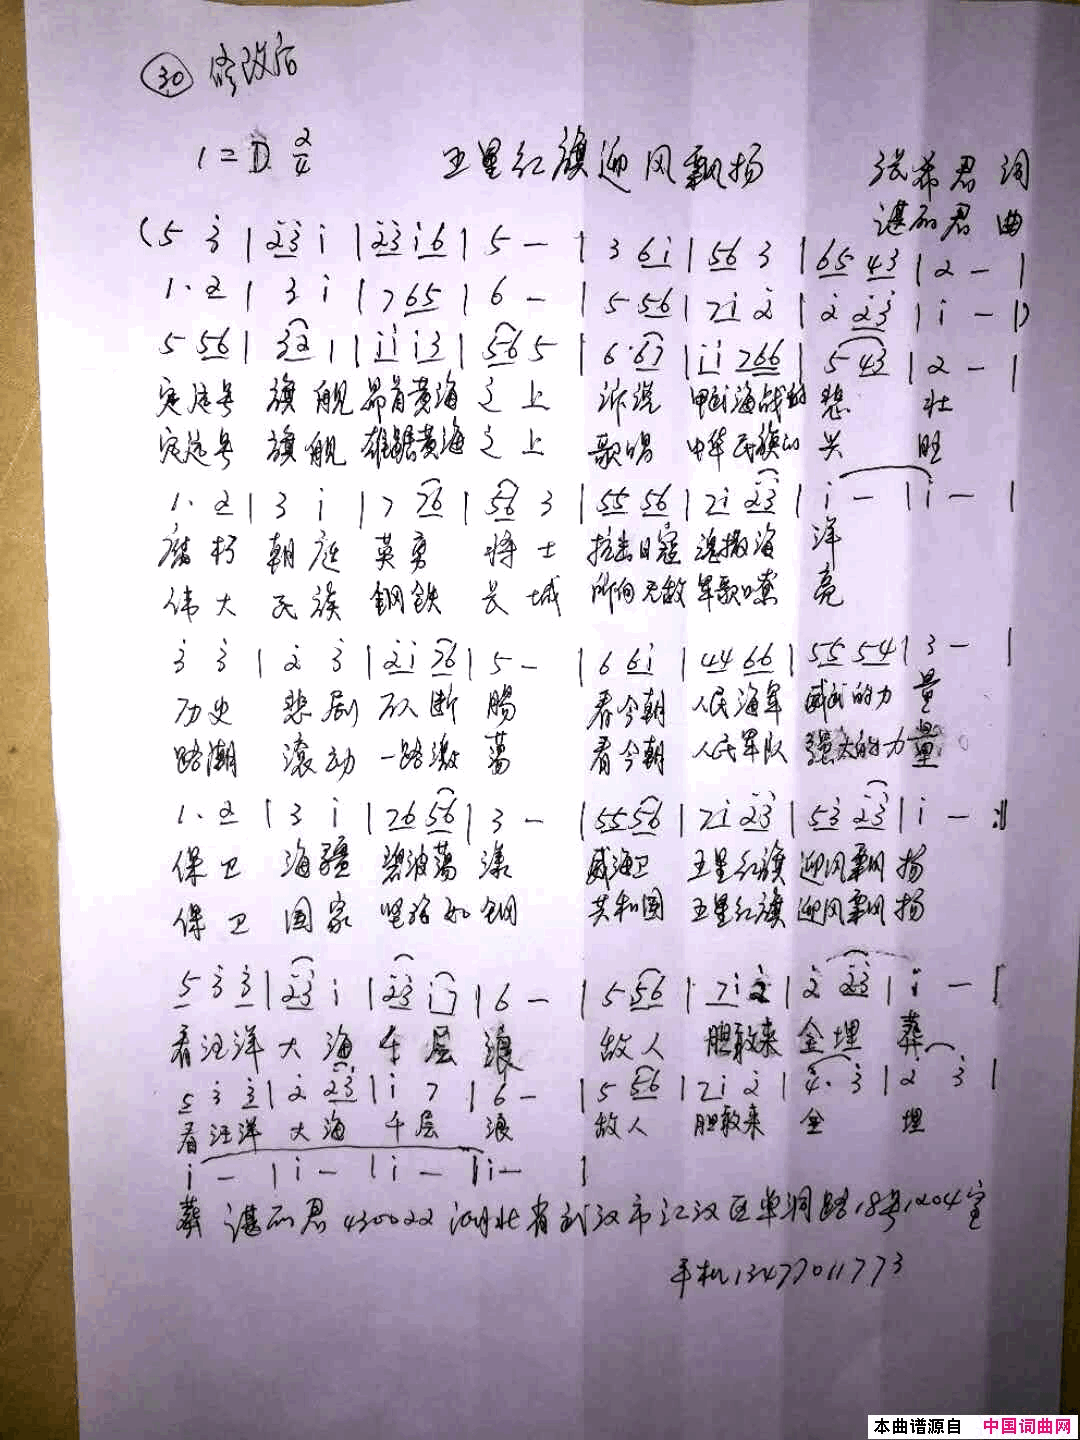 ㉚ 修改后
1=D 2/4 五星红旗迎风飘扬 张希君 词
谌丽君 曲
(5 3̇ | 2̇3̇ 1̇ | 2̇3̇ 1̇6 | 5 - | 3 61̇ | 56 3 | 65 43 | 2 - |
1. 2 | 3 1̇ | 7 65 | 6 - | 5 56 | 71̇ 2̇ | 2̇ 2̇3̇ | 1̇ - |)
5 56 | 32 1 | 1̇1̇ 1̇3 | 56 5 | 6.67 | 1̇1̇ 766 | 5 43 | 2 - |
定远号 旗舰 昂首黄海 之上 诉说 甲午海战的 悲壮
定远号 旗舰 雄踞黄海 之上 歌唱 中华民族的 兴旺
1. 2 | 3 1̇ | 7 76 | 56 3 | 55 56 | 71̇ 2̇3̇ | 1̇ - | 1̇ - |
腐朽 朝廷 英勇 将士 抗击日寇 魂撒海洋
伟大 民族 钢铁 长城 所向无敌 军歌嘹亮
3̇ 3̇ | 2̇ 3̇ | 2̇1̇ 76 | 5 - | 6 61̇ | 44 66 | 55 54 | 3 - |
历史 悲剧 断肠 看今朝 人民海军 威武的力量
滚动 一路激荡 看今朝 人民军队 强大的力量
1. 2 | 3 1̇ | 76 56 | 3 - | 55 56 | 71̇ 2̇3̇ | 53̇ 2̇3̇ | 1̇ - :||
保卫 海疆 碧波荡漾 威海卫 五星红旗 迎风飘扬
保卫 国家 坚强如钢 共和国 五星红旗 迎风飘扬
5 3̇ 3̇ | 2̇3̇ 1̇ | 2̇3̇ 1̇7 | 6 - | 5 56 | 71̇ 2̇ | 2̇ 2̇3̇ | 1̇ - |
看汪洋 大海 千层 浪 敌人 胆敢来 全埋 葬
5 3̇ 3̇ | 2̇ 2̇3̇ | 1̇ 7 | 6 - | 5 56 | 71̇ 2̇ | 4̇. 3̇ | 2̇ 3̇ |
看汪洋 大海 千层 浪 敌人 胆敢来 全 埋
1̇ - | 1̇ - | 1̇ - | 1̇ - |
葬 谌丽君 430022 湖北省武汉市江汉区单洞路18号1204室
手机13477011773
本曲谱源自 中国词曲网